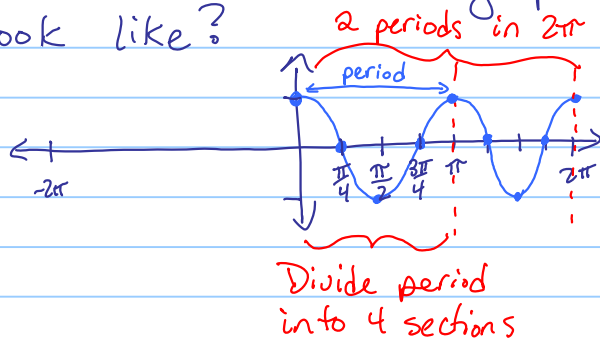 ook like?
2 periods in 2π
period
-2π
π/4 π/2 3π/4 π 2π
Divide period
into 4 sections